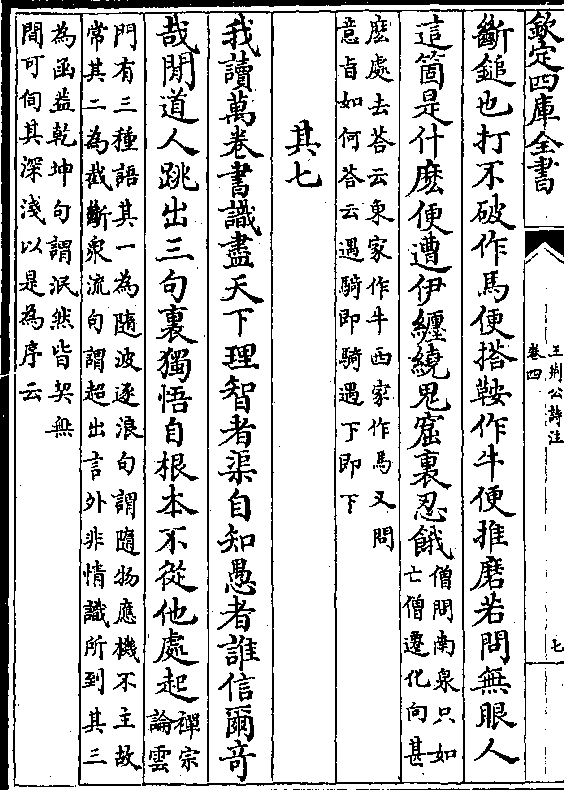 欽定四庫全書
王荆公詩注
卷四
七
斷鎚也打不破作馬便搭鞍作牛便推磨若問無眼人
這箇是什麽便遭伊纏繞鬼窟裏忍餓
僧問南泉只如
亡僧遷化向甚
麽處去荅云東家作牛西家作馬又問
意旨如何荅云遇騎即騎遇下即下
其七
我讀萬卷書識盡天下理智者渠自知愚者誰信爾奇
哉閒道人跳出三句裏獨悟自根本不從他處起
禪宗
論雲
門有三種語其一為隨波逐浪句謂隨物應機不主故
常其二為截斷衆流句謂超出言外非情識所到其三
為函葢乾坤句謂泯然皆契無
間可伺其深淺以是為序云